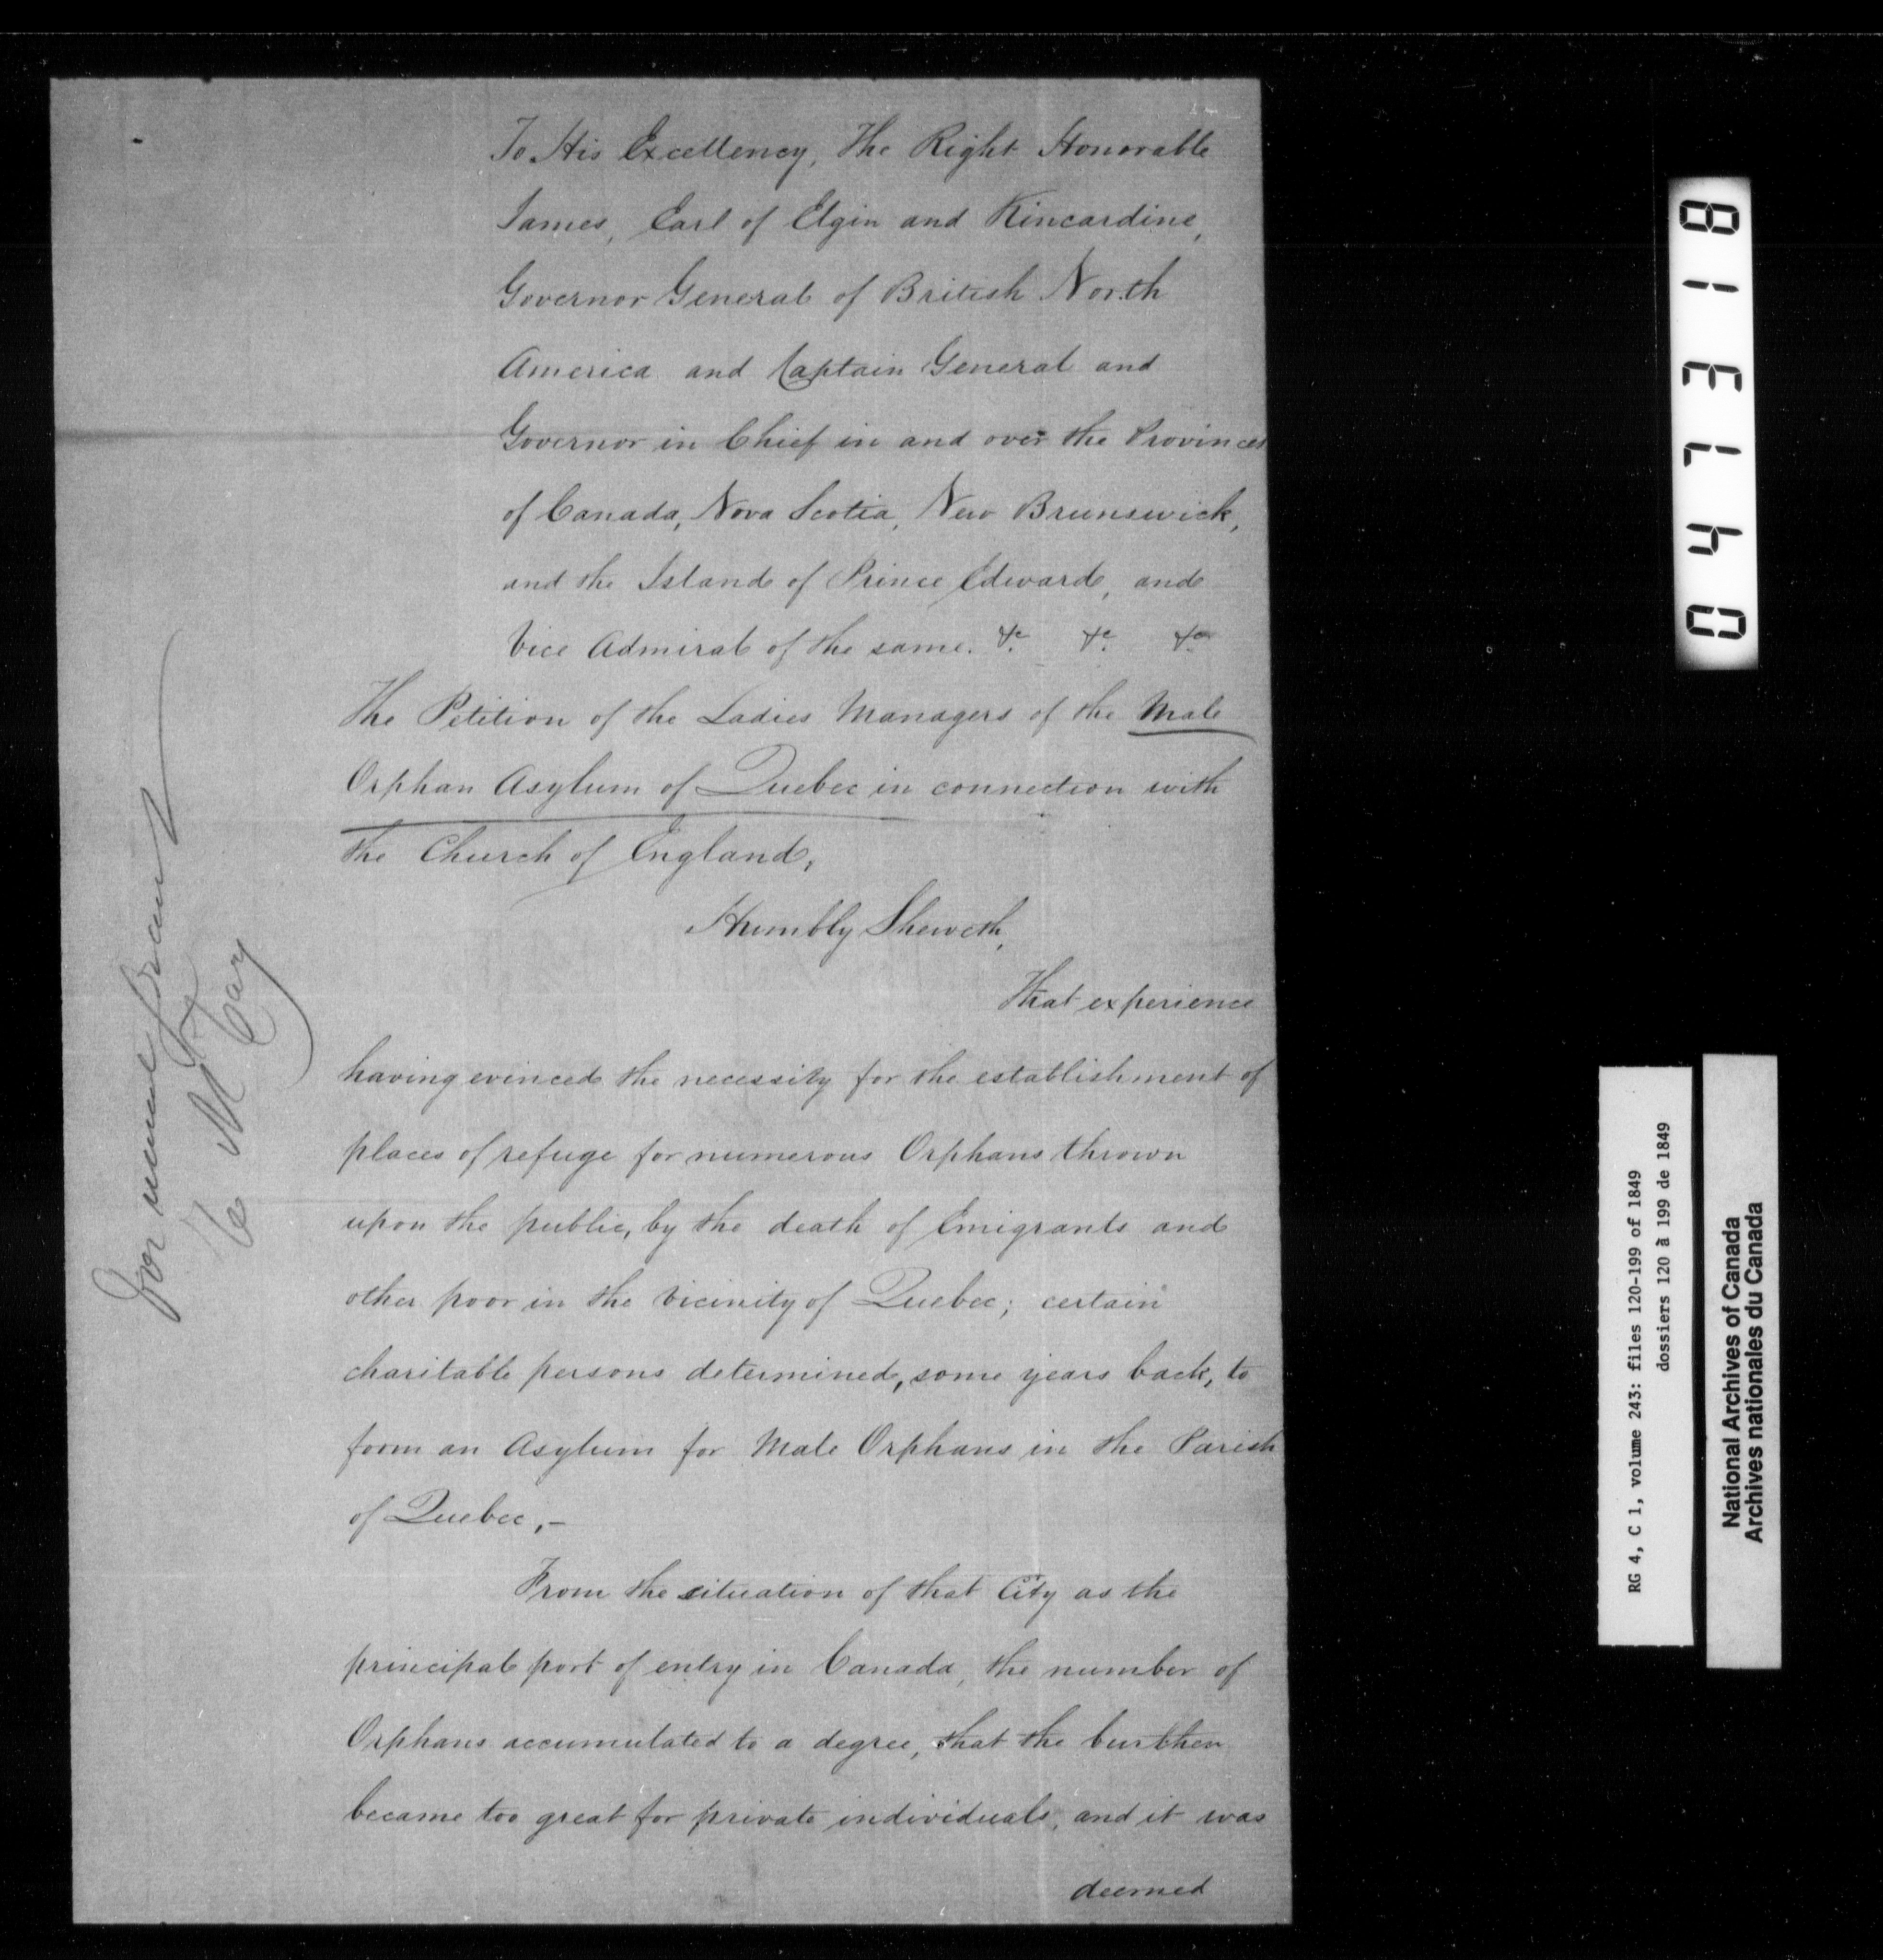 To His Excellency, The Right Honorable
James, Earl of Elgin and Kincardine,
Governor General of British North
America and Captain General and
Governor in Chief in and over the Provinces
of Canada, Nova Scotia, New Brunswick,
and the Island of Prince Edward, and
Vice Admiral of the same. &c. &c. &c.
The Petition of the Ladies Managers of the Male
Orphan Asylum of Quebec in connection with
the Church of England,
Humbly Sheweth,
That experience
having evinced the necessity for the establishment of
places of refuge for numerous Orphans thrown
upon the public, by the death of Emigrants and
other poor in the vicinity of Quebec; certain
charitable persons determined, some years back, to
form an Asylum for Male Orphans in the Parish
of Quebec,-
From the situation of that City as the
principal port of entry in Canada, the number of
Orphans accumulated to a degree, that the burthen
became too great for private individuals, and it was
deemed
For usual
047318
RG 4, C 1, volume 243: files 120-199 of 1849
dossiers 120 à 199 de 1849
National Archives of Canada
Archives nationales du Canada